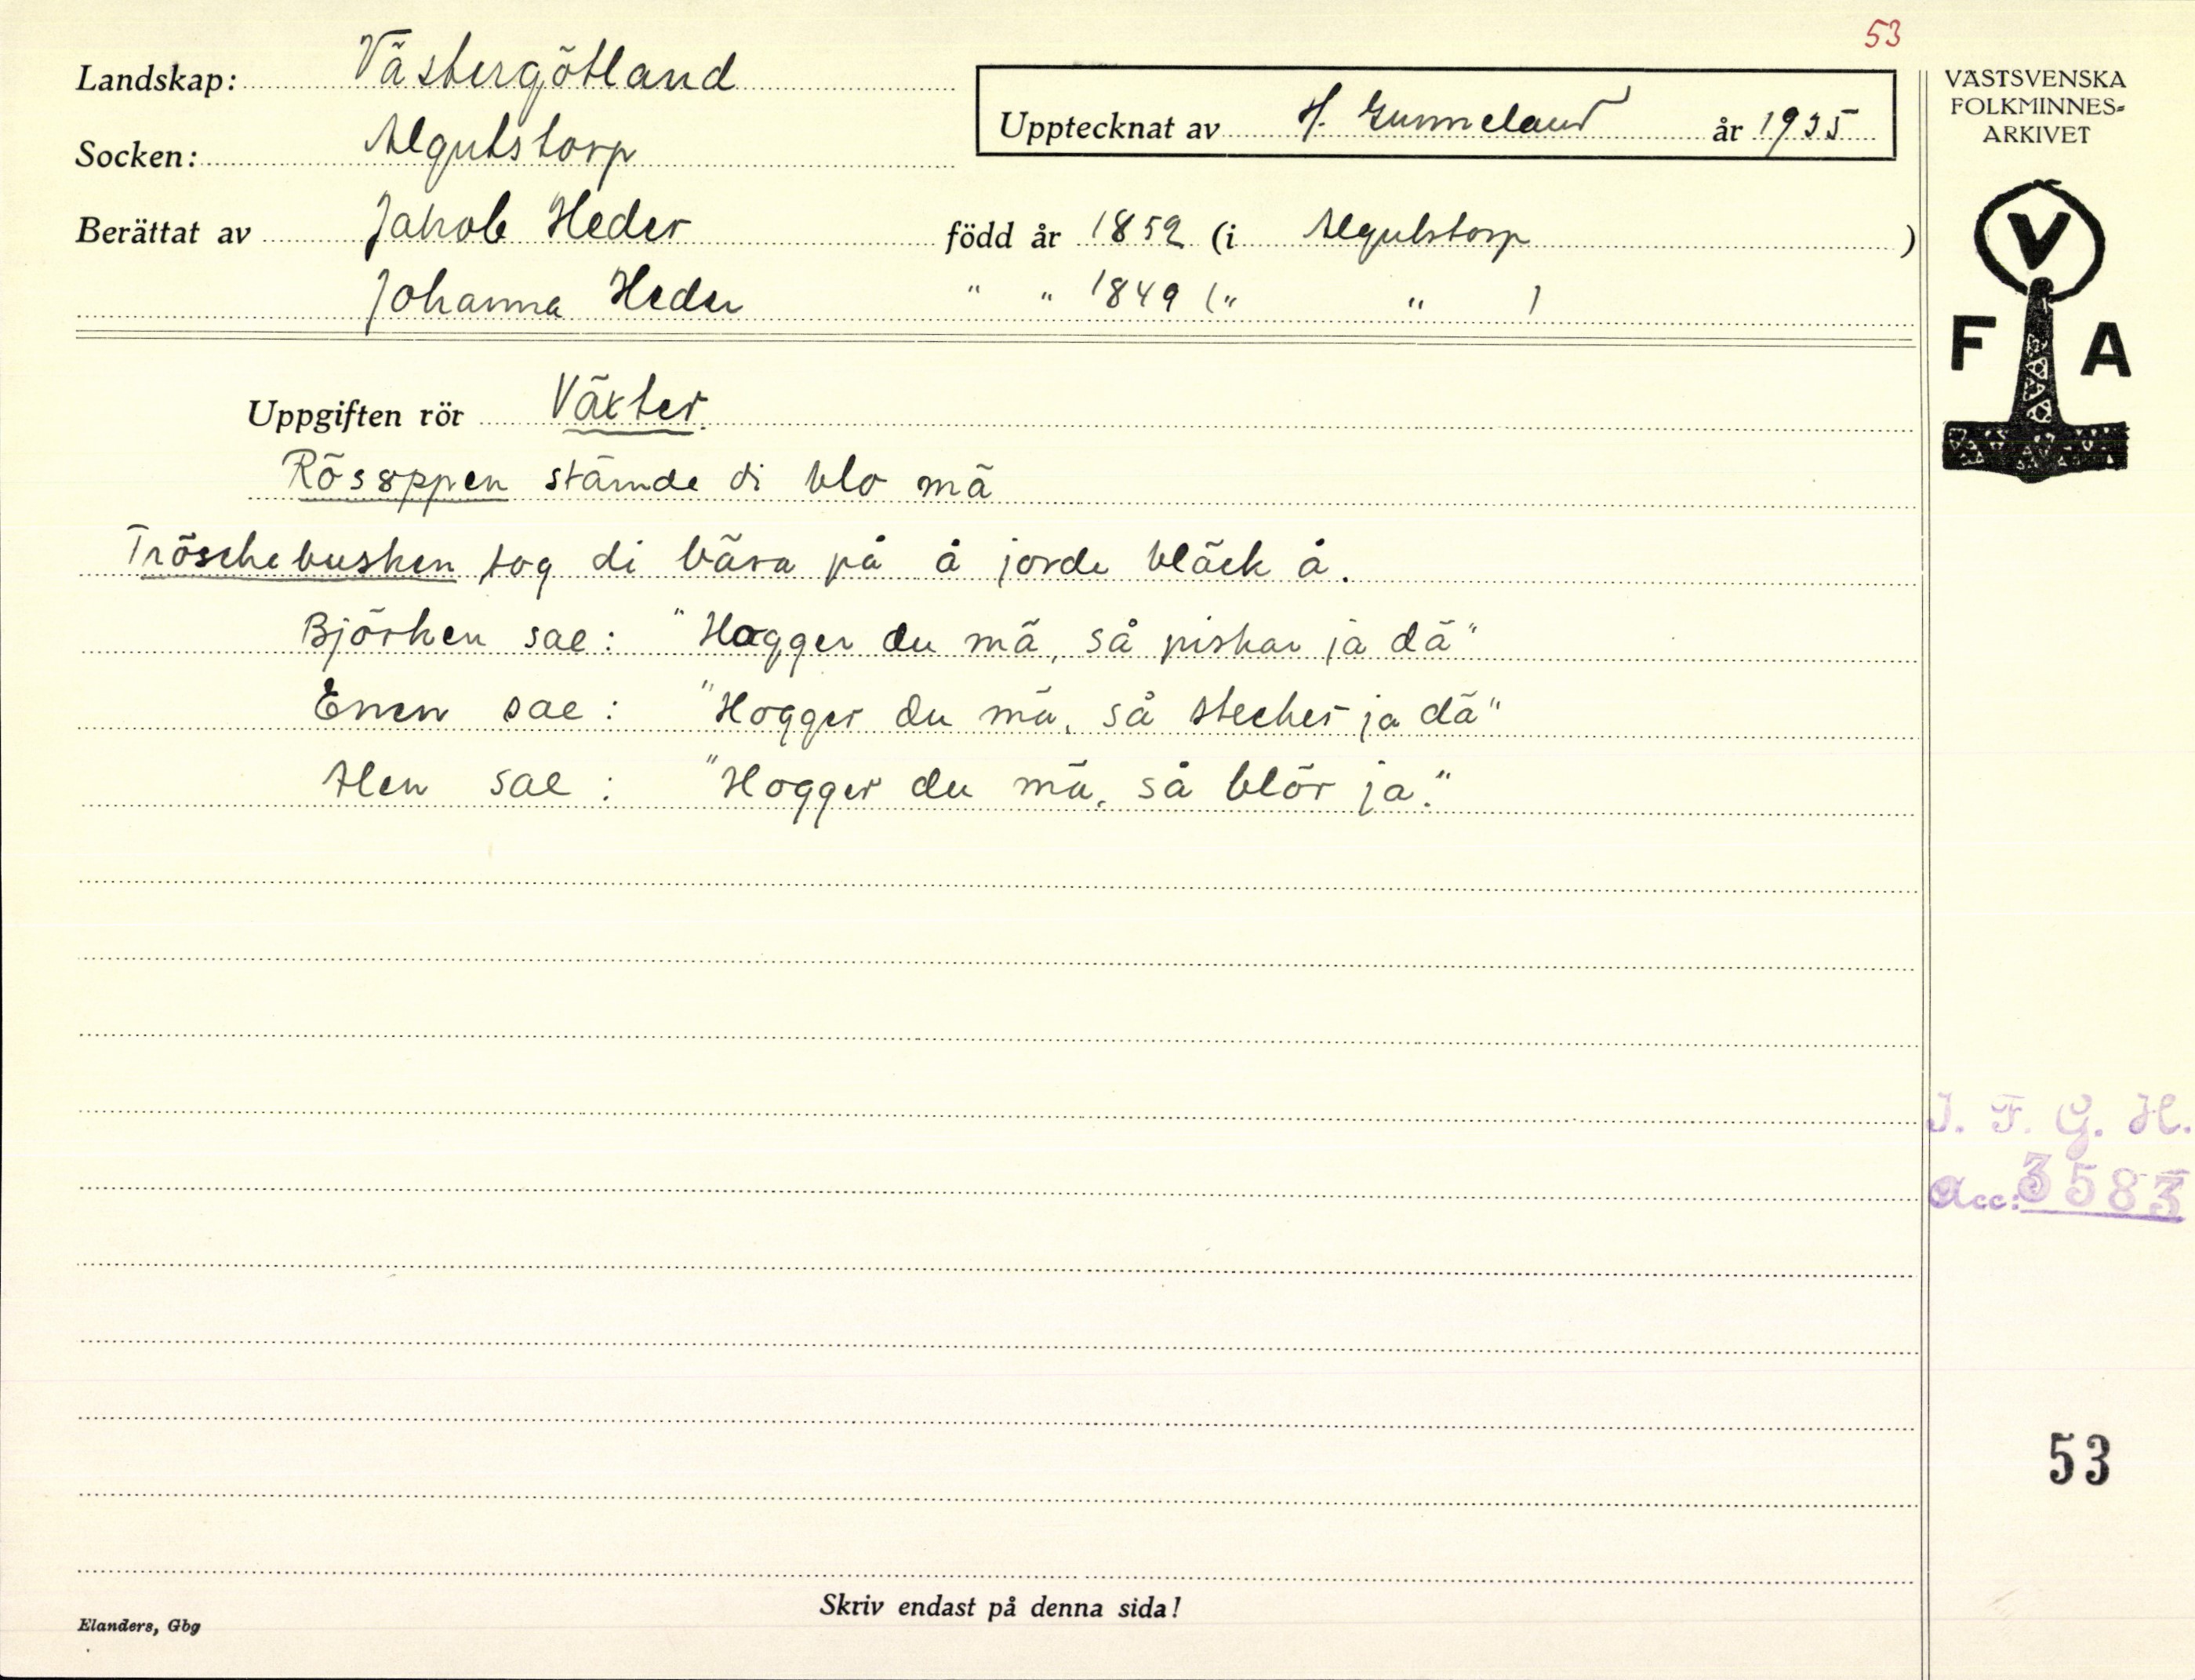 53
Landskap: Västergötland
Socken: Algutstorp
Upptecknat av H. Gunneland år 1935
VÄSTSVENSKA
FOLKMINNES-
ARKIVET
Berättat av Jakob Heder född år 1852 (i Algutstorp)
Johanna Heder " " 1849 (" ")
V
F A
Uppgiften rör Växter.
Rösoppen stämde di blo mä
Trösche busken tog di bära på å jorde bläck å.
Björken sae: "Hogger du mä, så piskar ja dä"
Enen sae: "Hogger du mä, så stecker ja dä"
Alen sae: "Hogger du mä, så blör ja."
I. F. G. H.
Acc: 3583
53
Skriv endast på denna sida!
Elanders, Gbg